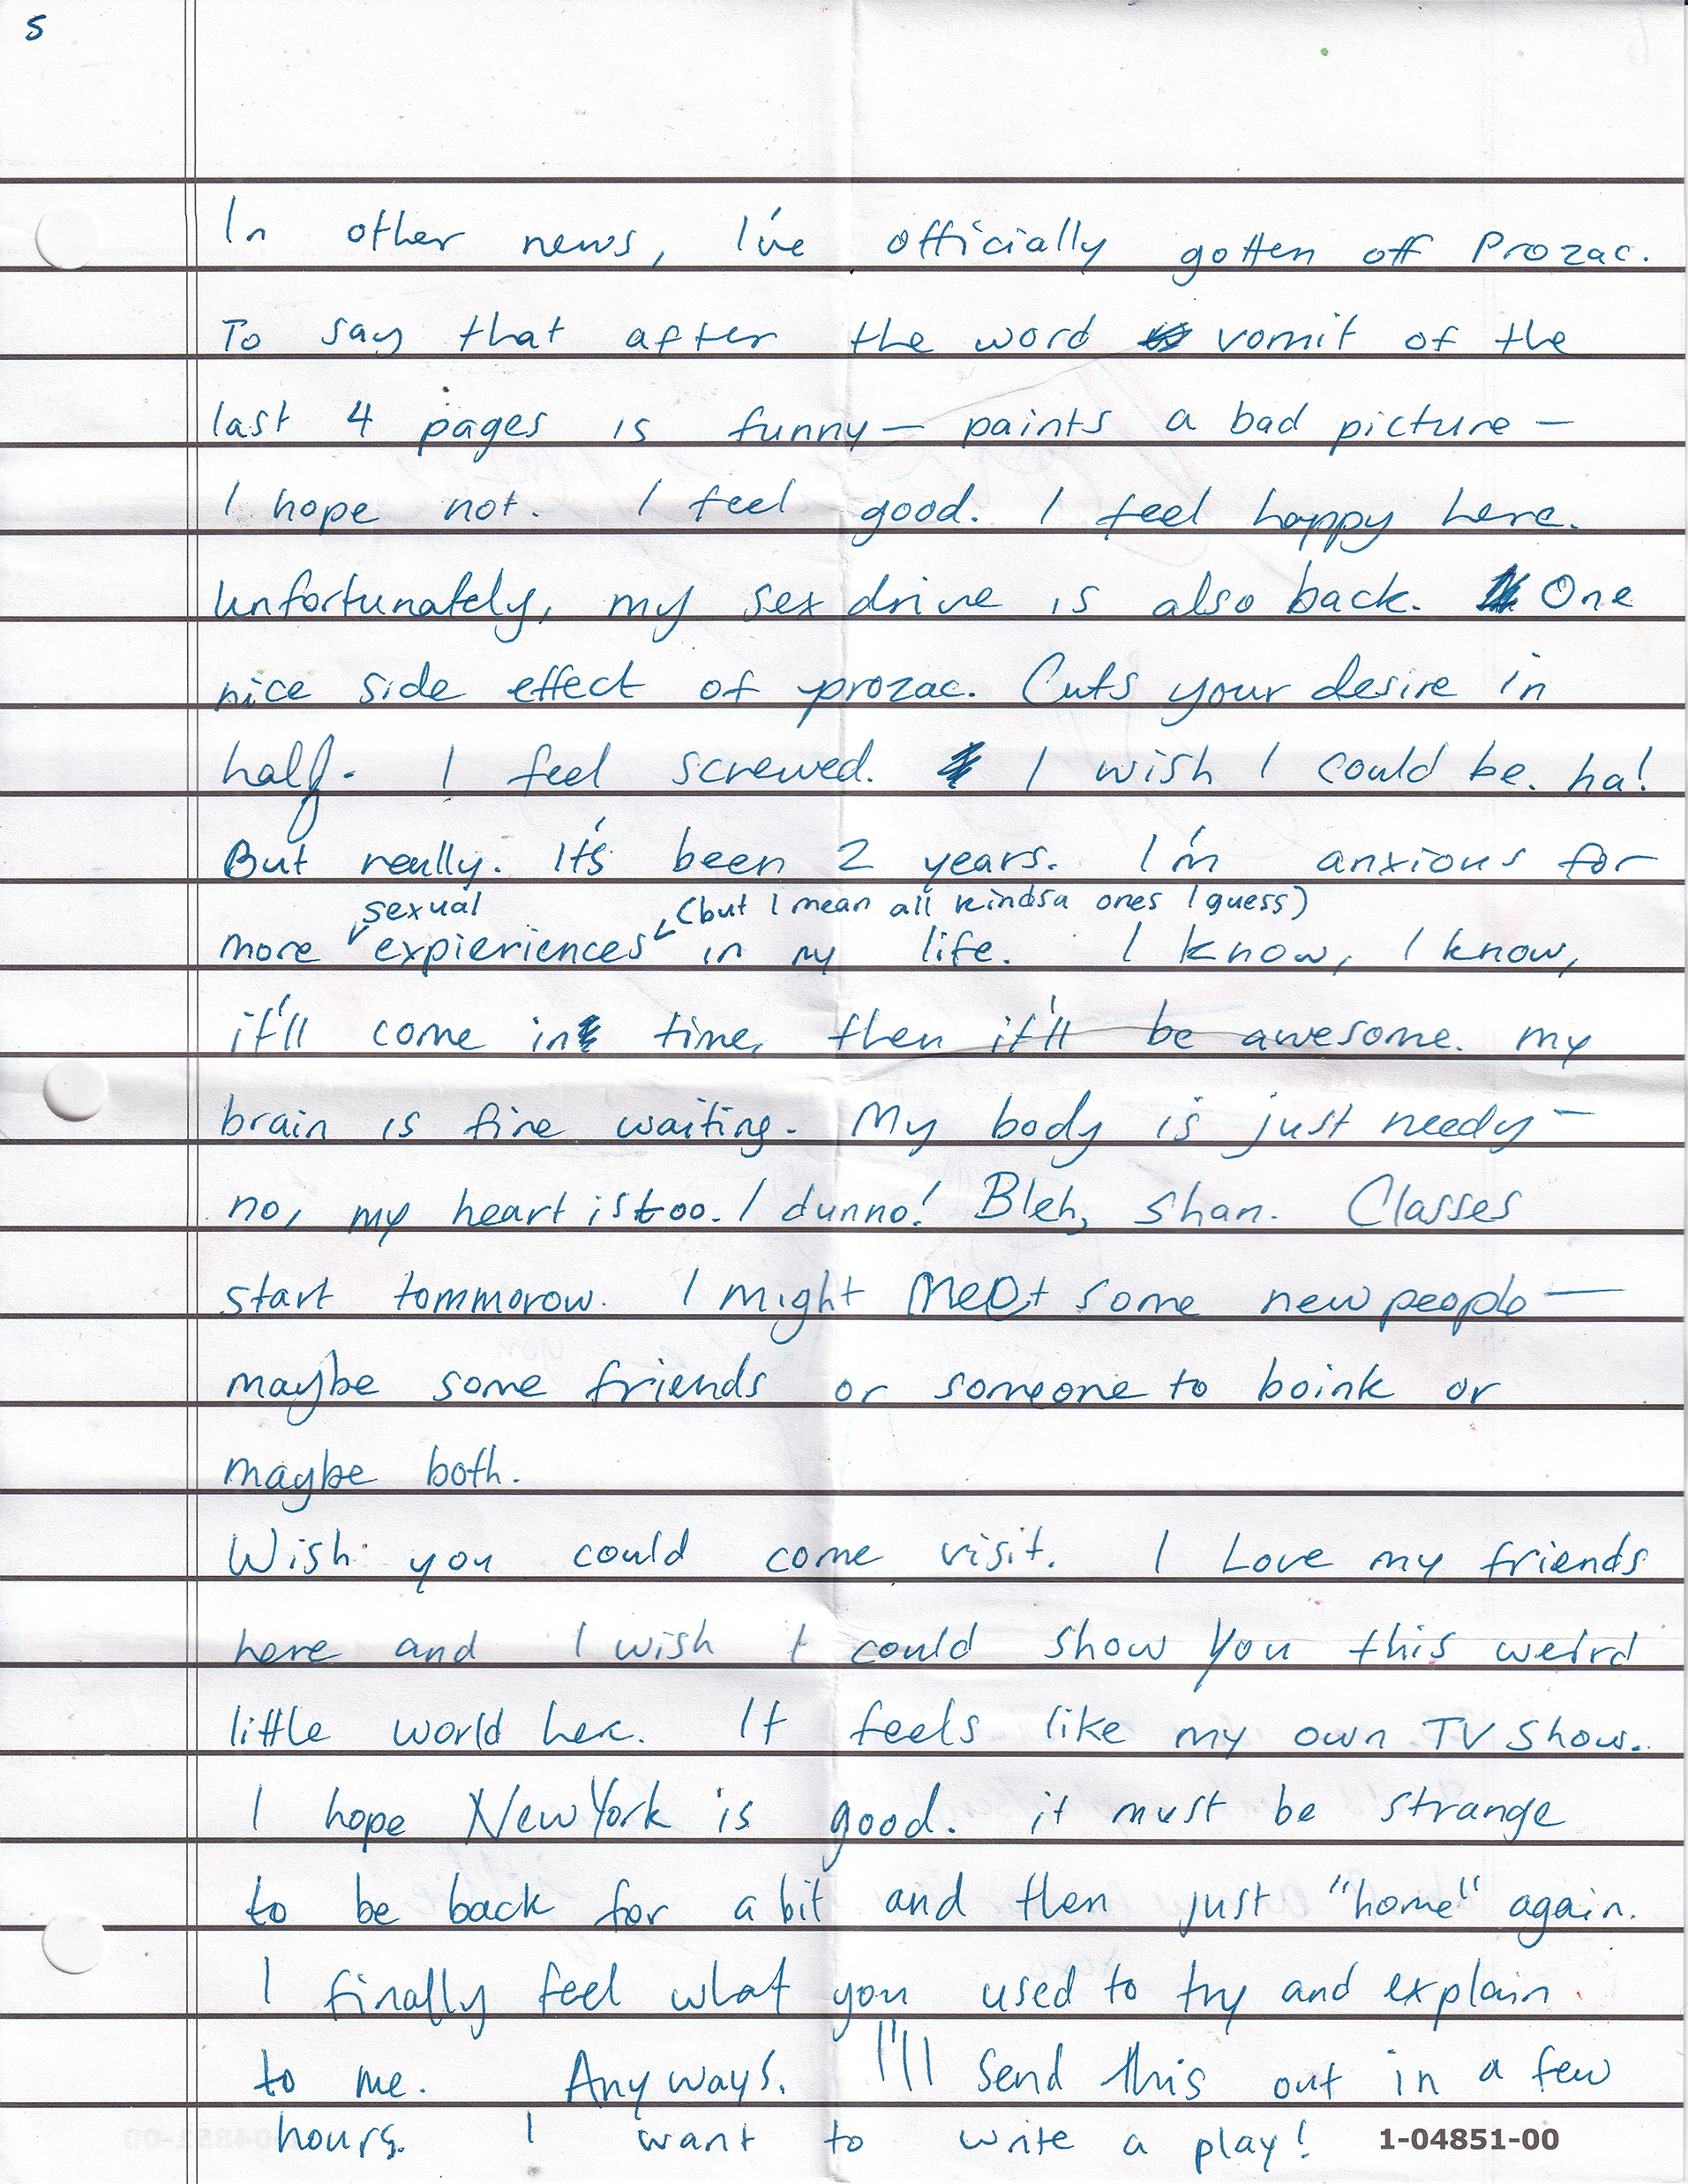 5
In other news, I've officially gotten off Prozac.
To say that after the word vomit of the
last 4 pages is funny— paints a bad picture —
I hope not. I feel good. I feel happy here.
Unfortunately, my sex drive is also back. One
nice side effect of prozac. Cuts your desire in
half. I feel screwed. I wish I could be. ha!
But really. It's been 2 years. I'm anxious for
sexual (but I mean all kindsa ones I guess)
more expieriences in my life. I know, I know,
it'll come in time, then it'll be awesome. my
brain is fine waiting. My body is just needy —
no, my heart is too. I dunno! Bleh, shan. Classes
start tommorow. I might meet some new people —
maybe some friends or someone to boink or
maybe both.
Wish you could come visit. I Love my friends
here and I wish I could show you this weird
little world here. It feels like my own TV show.
I hope New York is good. it must be strange
to be back for a bit and then just "home" again.
I finally feel what you used to try and explain
to me. Anyways. I'll send this out in a few
hours. I want to write a play!
1-04851-00